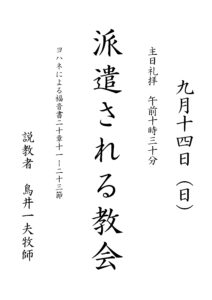 九月十四日（日）
主日礼拝　午前十時三十分
派遣される教会
ヨハネによる福音書二十章十一ー二十三節
説教者　鳥井一夫牧師